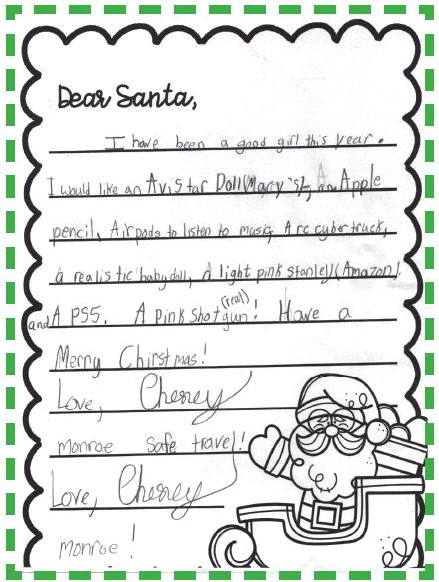 Dear Santa,
I have been a good girl this year.
I would like an Avistar Doll(Macy's), an Apple
pencil, Airpods to listen to music, A rc cybertruck,
a realistic babydoll, A light pink stanley(Amazon).
and A PS5. A pink shotgun(real)! Have a
Merry Chirstmas!
Love, Cheney
monroe safe travel!
Love, Cheney
monroe!